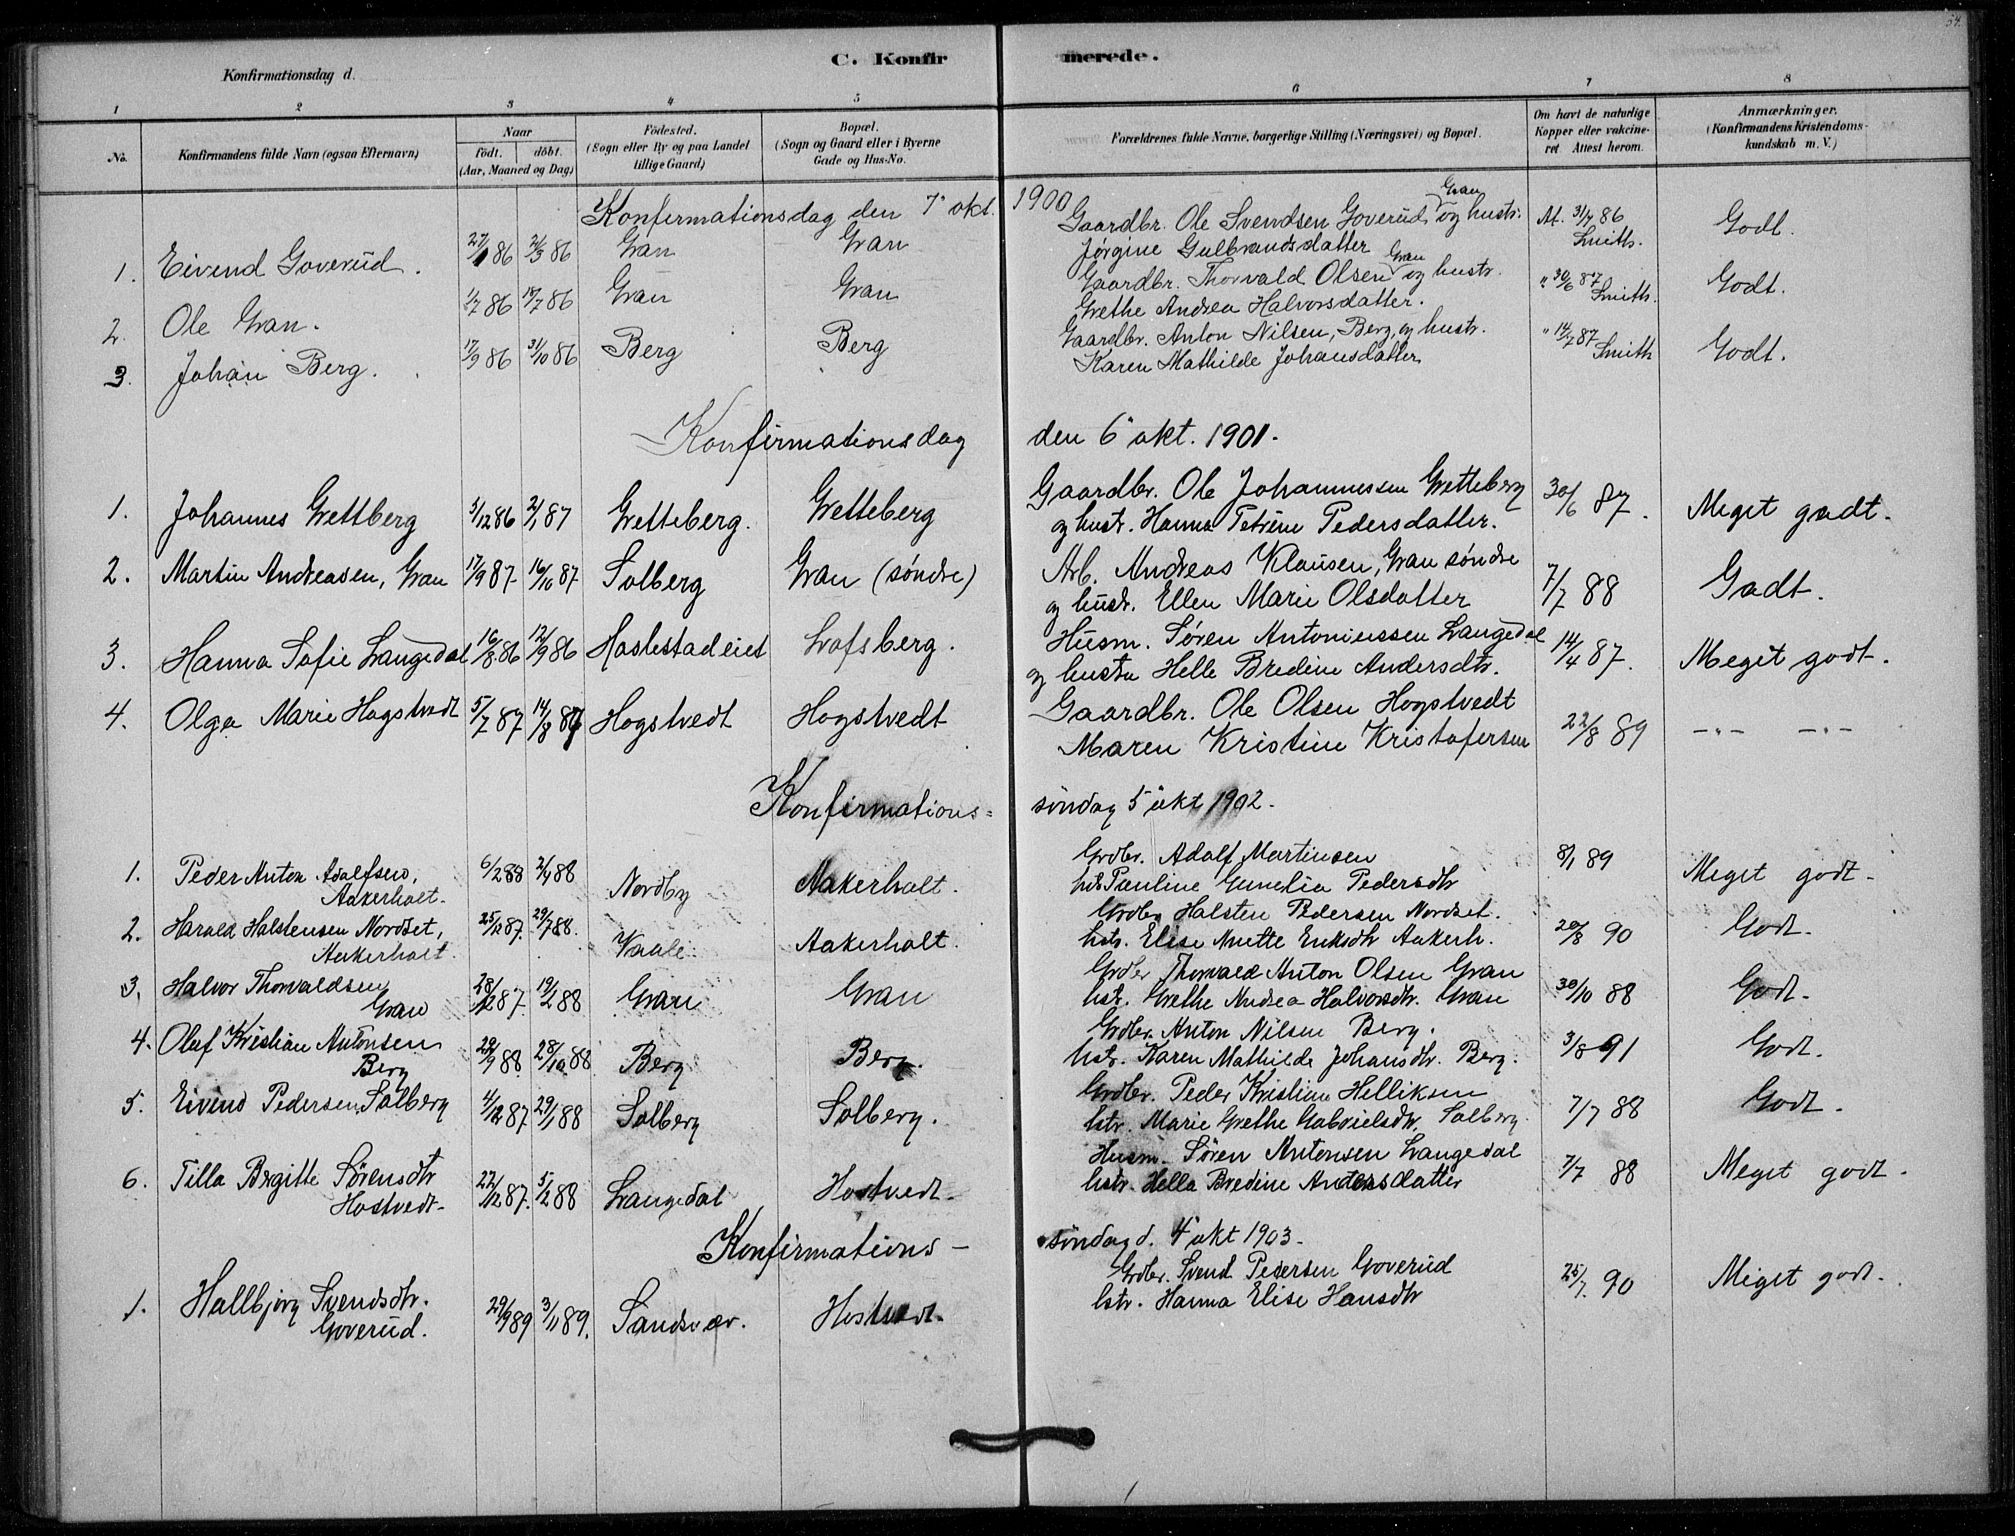 54.
C. Konfirmerede.
Konfirmationsdag d.
1 2 3 4 5 6 7 8
No.
Konfirmandens fulde Navn (ogsaa Efternavn)
Naar
födt. döbt.
(Aar, Maaned og Dag)
Födested.
(Sogn eller By og paa Landet
tillige Gaard)
Bopæl.
(Sogn og Gaard eller i Byerne
Gade og Hus-No.
Forældrenes fulde Navne, borgerlige Stilling (Næringsvei) og Bopæl.
Om havt de naturlige
Kopper eller vakcine-
ret. Attest herom.
Anmærkninger.
(Konfirmandens Kristendoms-
kundskab m. V.)
Konfirmationsdag den 7' okt. 1900
1. Eivend Goverud. 27/1 86 2/3 86 Gran Gran Gaardbr. Ole Svendsen Goverud, Gran og hustr. At. 31/7 86 Godt.
Jørgine Gulbrandsdatter Smith.
2. Ole Gran. 1/7 86 18/7 86 Gran Gran Gaardbr. Thorvald Olsen Gran og hustr. " 30/6 87 Godt.
Grethe Andrea Halvorsdatter. Smith.
3. Johan Berg. 17/9 86 31/10 86 Berg Berg Gaardbr. Anton Nilsen, Berg, og hustr. " 14/7 87 Godt.
Karen Mathilde Johansdatter Smith
Konfirmationsdag den 6' okt. 1901.
1. Johannes Grettberg 3/12 86 2/1 87 Gretteberg. Gretteberg Gaardbr. Ole Johannessen Gretteberg 30/6 87. Meget godt.
og hustr. Hanna Petrine Pedersdatter.
2. Martin Andreasen, Gran 17/9 87 16/10 87 Solberg Gran (søndre) Arb. Andreas Klausen, Gran søndre 7/7 88 Godt.
og hustr. Ellen Marie Olsdatter
3. Hanna Sofie Langedal 16/8 86 12/9 86 Haslestadeiet Lofsberg. Husm. Søren Antoniussen Langedal 14/4 87. Meget godt.
og hustru Helle Bredine Andersdtr.
4. Olga Marie Hogstvedt 5/7 87 14/8 87 Hogstvedt Hogstvedt Gaardbr. Ole Olsen Hogstvedt 22/8 89 —"— —"—
Maren Kristine Kristofersen
Konfirmations= søndag 5' okt 1902.
1. Peder Anton Adolfsen, 6/2 88 2/4 88 Nordby Aakerholt. Grdbr. Adolf Martinsen 8/1 89 Meget godt.
Aakerholt. hst. Pauline Gunelia Pedersdtr
2. Harald Halstensen Nordset, 25/12 87. 29/7 88. Vaale Aakerholt. Grdbr. Halsten Pedersen Nordset. 20/8 90 Godt.
Aakerholt. hstr. Elise Anette Eriksdtr Aakerh.
3. Halvor Thorvaldsen 28/12 87. 19/2 88 Gran Gran Grdbr Thorvald Anton Olsen Gran 30/10 88 Godt.
Gran hst. Grethe Andrea Halvorsdtr. Gran
4. Olaf Kristian Antonsen 29/9 88. 28/10 88 Berg Berg. Grdbr. Anton Nilsen Berg. 3/8 91 Godt.
Berg hstr. Karen Mathilde Johansdtr. Berg.
5. Eivind Pedersen Solberg 4/12 87 29/1 88 Solberg Solberg. Grdbr. Peder Kristian Helliksen 7/7 88 Godt.
hstr. Marie Grethe Gabrielsdtr, Solberg.
6. Tilla Birgitte Sørensdtr 22/12 87. 5/2 88 Langedal Hostvedt. Husm. Søren Antonsen Langedal 7/7 88 Meget godt.
Hostvedt. hstr. Hella Bredine Andersdatter
Konfirmations- søndag d. 4' okt 1903.
1. Hallbjorg Svendsdtr. 29/9 89 3/11 89. Sandsvær. Hostvedt. Grdbr. Svend Pedersen Goverud 25/7. 90 Meget godt.
Goverud. hstr. Hanna Elise Hansdtr